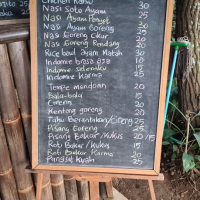 Nasi Soto Ayam 30
Nasi Ayam 25
Nasi Ayam Goreng 25
Nasi Goreng Cikur 20
Nasi Goreng Rendang 20
Rice bowl ayam Matah 30
Indomie 15
Indomie 25
Indomie Karma 25
Tempe mendoan 20
Bala-bala 15
Cireng 20
Kentang goreng 20
Tahu Berantakan/Goreng 25
Pisang Goreng 25
Pisang Bakar/Kukus 20/15
Roti Bakar/Kukus 15
Roti Bakar Karma 20
Pangsit Kuah 25